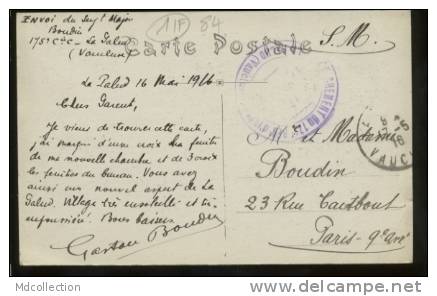 Envoi du Sergt Major
Boudin
175e Cie - La Palud
(Vaucluse)
11F 84
Carte Postale
S. M.
La Palud 16 Mai 1916
Chers Parents,
Je viens de trouver cette carte,
j'ai marqué d'une croix les fenêtres
de ma nouvelle chambre et de 3 croix
les fenêtres du bureau. Vous avez
ainsi un nouvel aspect de La
Palud. Village très ensoleillé et très
empoussiéré. Bons baisers
Gaston Boudin
M. et Madame
Boudin
23 Rue Taitbout
Paris - 9e arrt
VAUCL
Mdcollection
http://www.delcampe.net